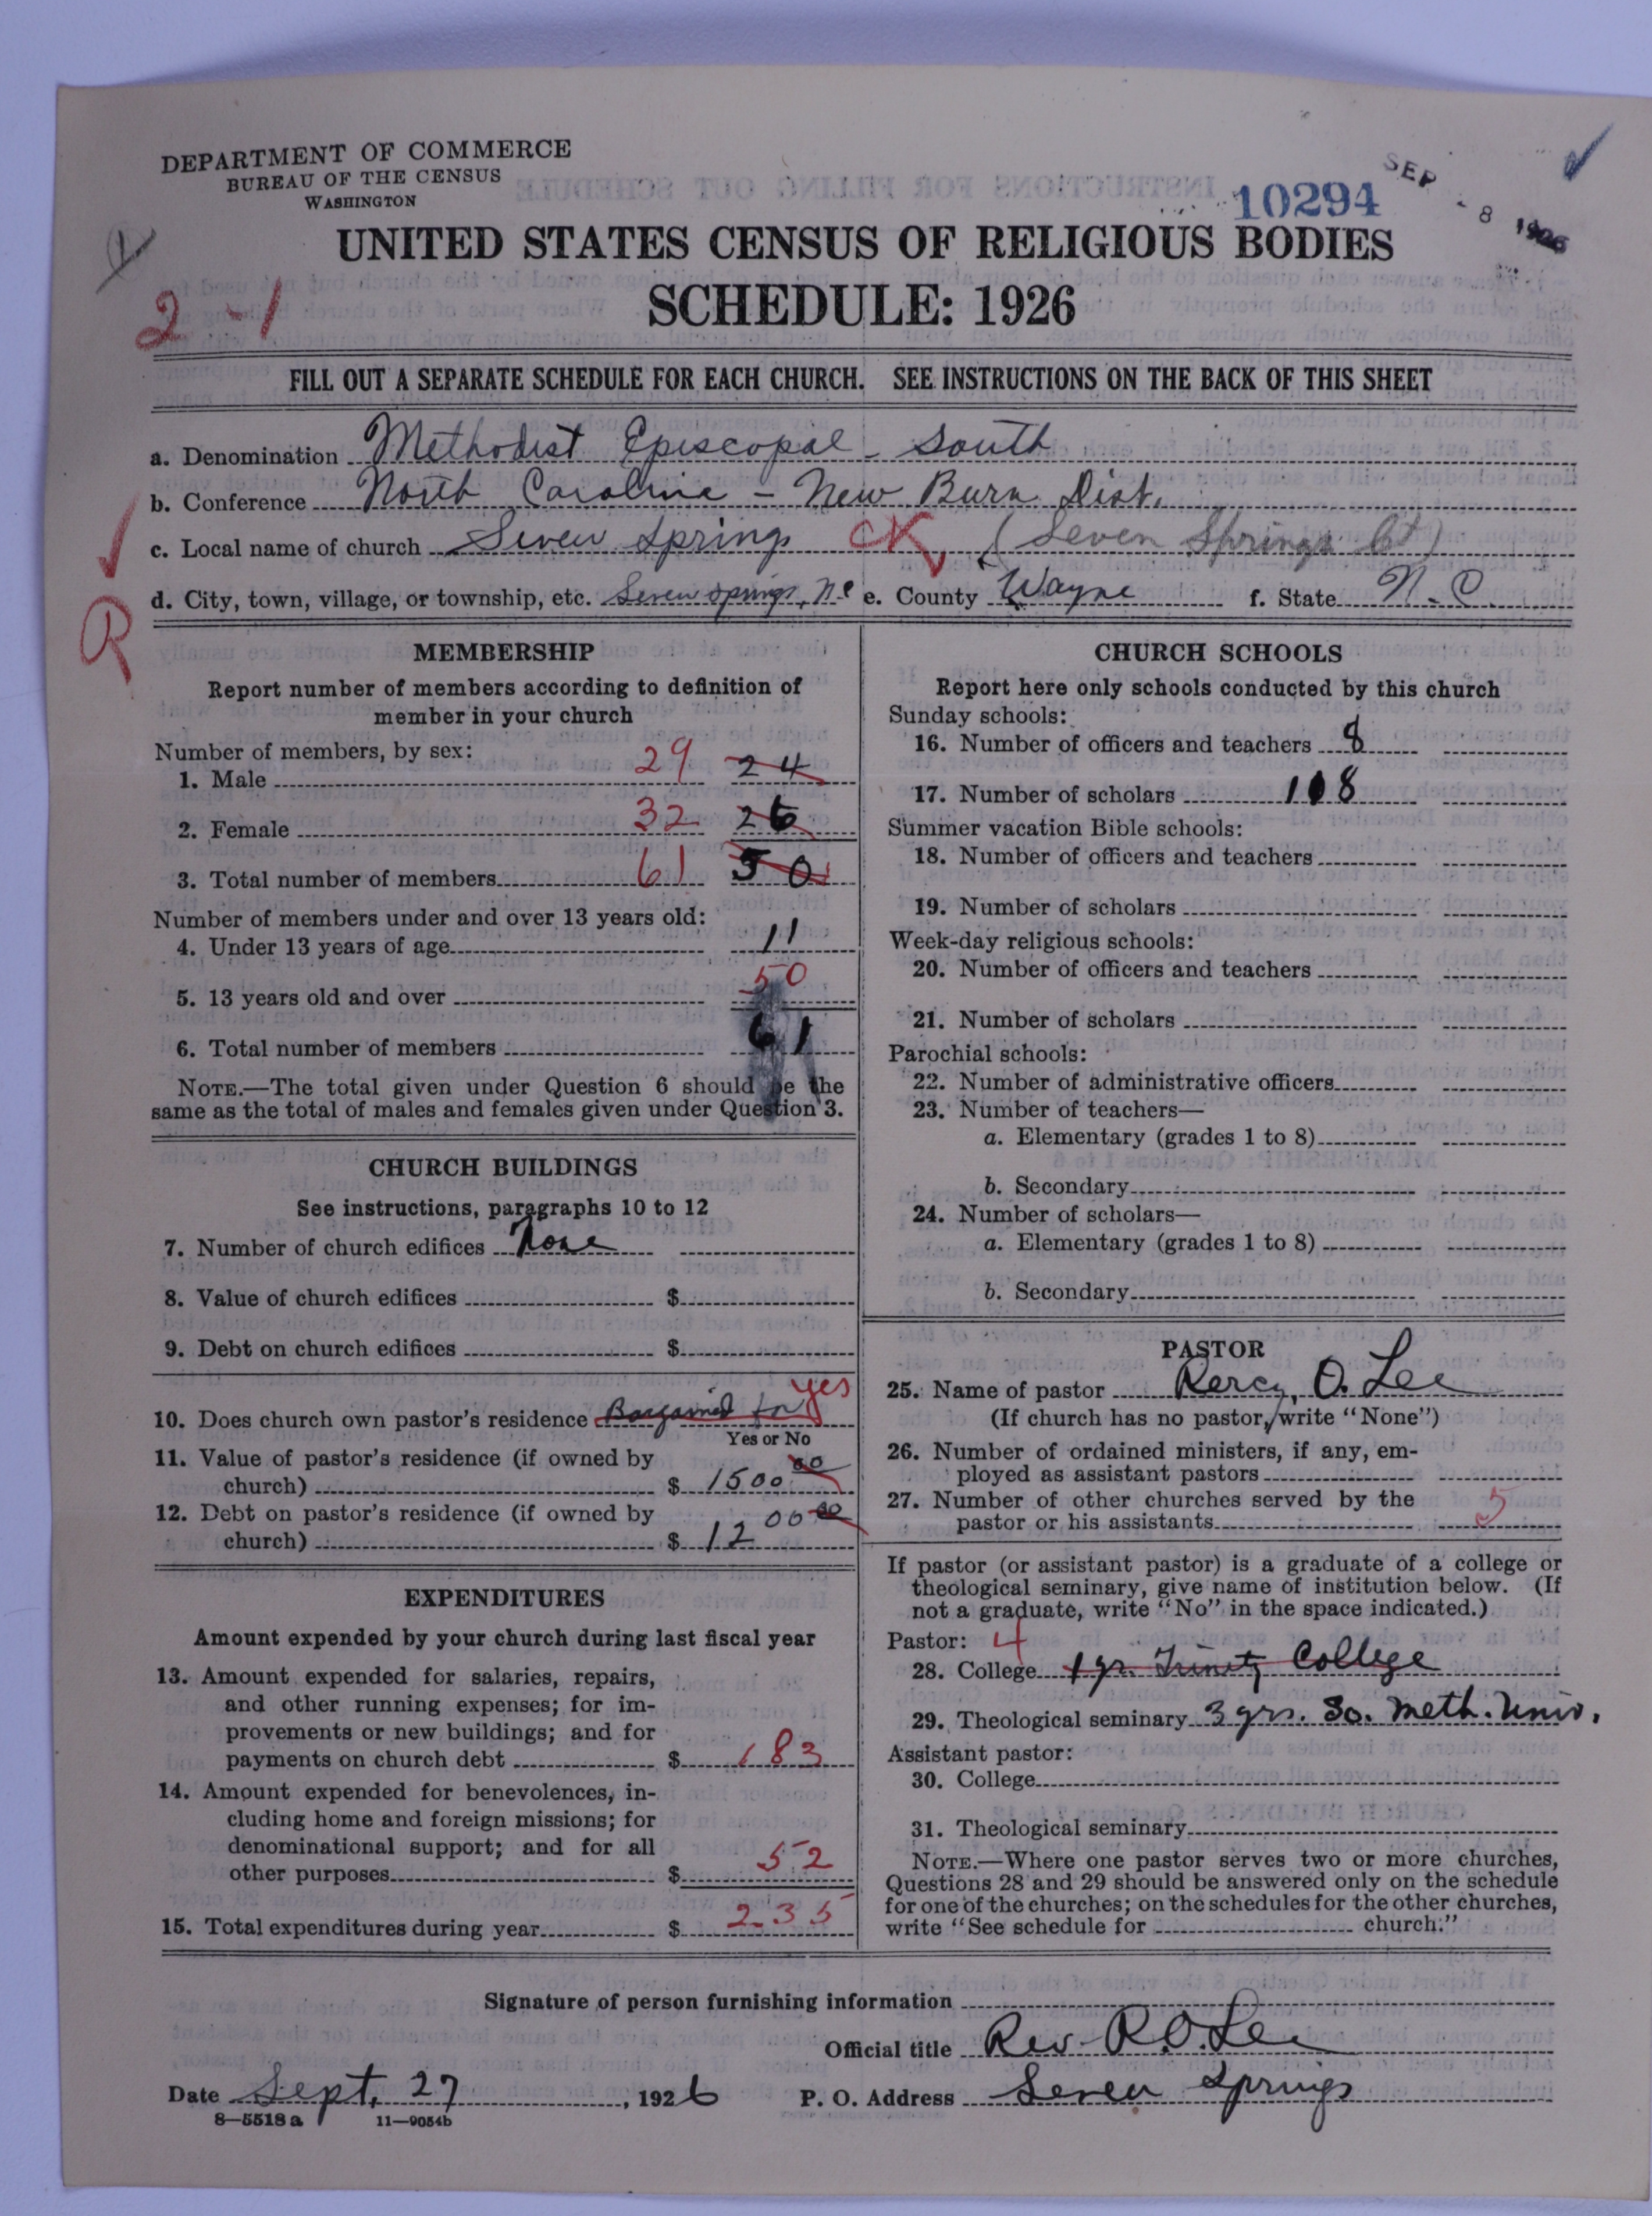 DEPARTMENT OF COMMERCE
BUREAU OF THE CENSUS
WASHINGTON
10294
SEP - 8 1926
UNITED STATES CENSUS OF RELIGIOUS BODIES
2 - 1
SCHEDULE: 1926
FILL OUT A SEPARATE SCHEDULE FOR EACH CHURCH. SEE INSTRUCTIONS ON THE BACK OF THIS SHEET
a. Denomination Methodist Episcopal - South
b. Conference North Carolina - New Burn Dist.
c. Local name of church Seven Springs CK (Seven Springs Ct)
d. City, town, village, or township, etc. Seven Springs, N C e. County Wayne f. State N. C.
R
MEMBERSHIP
Report number of members according to definition of
member in your church
Number of members, by sex:
1. Male 29 24
2. Female 32 26
3. Total number of members 61 50
Number of members under and over 13 years old:
4. Under 13 years of age 11
5. 13 years old and over 50
6. Total number of members 61
NOTE.—The total given under Question 6 should be the
same as the total of males and females given under Question 3.
CHURCH BUILDINGS
See instructions, paragraphs 10 to 12
7. Number of church edifices None
8. Value of church edifices $
9. Debt on church edifices $
10. Does church own pastor's residence Bargained for yes
Yes or No
11. Value of pastor's residence (if owned by
church) $ 1500 00
12. Debt on pastor's residence (if owned by
church) $ 1200 00
EXPENDITURES
Amount expended by your church during last fiscal year
13. Amount expended for salaries, repairs,
and other running expenses; for im-
provements or new buildings; and for
payments on church debt $ 183
14. Amount expended for benevolences, in-
cluding home and foreign missions; for
denominational support; and for all
other purposes $ 52
15. Total expenditures during year $ 235
CHURCH SCHOOLS
Report here only schools conducted by this church
Sunday schools:
16. Number of officers and teachers 8
17. Number of scholars 108
Summer vacation Bible schools:
18. Number of officers and teachers
19. Number of scholars
Week-day religious schools:
20. Number of officers and teachers
21. Number of scholars
Parochial schools:
22. Number of administrative officers
23. Number of teachers—
a. Elementary (grades 1 to 8)
b. Secondary
24. Number of scholars—
a. Elementary (grades 1 to 8)
b. Secondary
PASTOR
25. Name of pastor Percy, O. Lee
(If church has no pastor, write "None")
26. Number of ordained ministers, if any, em-
ployed as assistant pastors
27. Number of other churches served by the
pastor or his assistants 5
If pastor (or assistant pastor) is a graduate of a college or
theological seminary, give name of institution below. (If
not a graduate, write "No" in the space indicated.)
Pastor: 4
28. College 1 yr. Trinity College
29. Theological seminary 3 yrs. So. Meth. Univ.
Assistant pastor:
30. College
31. Theological seminary
NOTE.—Where one pastor serves two or more churches,
Questions 28 and 29 should be answered only on the schedule
for one of the churches; on the schedules for the other churches,
write "See schedule for church."
Signature of person furnishing information
Official title Rev. P. O. Lee
Date Sept, 27, 1926 P. O. Address Seven Springs
8—5518 a 11—9054b